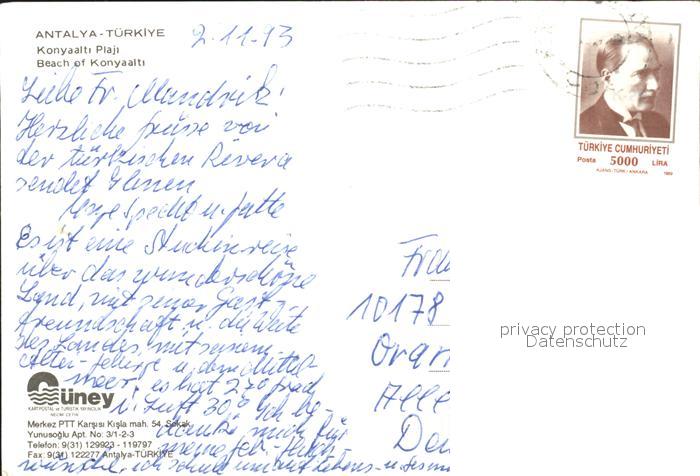 ANTALYA - TÜRKİYE
Konyaaltı Plajı
Beach of Konyaaltı
2.11.93
TÜRKİYE CUMHURİYETİ
Posta 5000 LİRA
AJANS-TÜRK/ANKARA 1989
Liebe Fr. Mundrik!
Herzliche Grüsse von
der türkischen Rivera
sendet Ihnen
Specht u. Gatte
Es ist eine Studienreise
über das wunderschöne
Land, mit seiner Gast-
freundschaft u. die Weite
des Landes, mit seinem
gebirge u. dem Mittel-
meer, es hat 27° grad
u. Luft 30° Ich be-
danke mich für
ich u.
Frau
10178
Oran
Alle
privacy protection
Datenschutz
Güney
KARTPOSTAL ve TURİSTİK YAYINCILIK
NECMİ ÇETİN
Merkez PTT Karşısı Kışla mah. 54. Sokak
Yunusoğlu Apt. No: 3/1-2-3
Telefon: 9(31) 129923 - 119797
Fax: 9(31) 122277 Antalya-TÜRKİYE